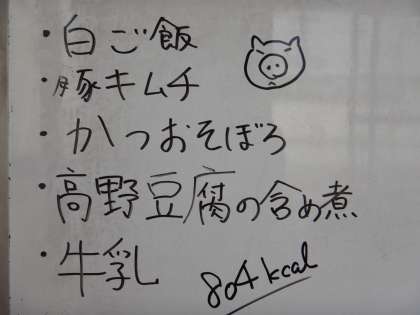 ・白ご飯
・豚キムチ
・かつおそぼろ
・高野豆腐の含め煮
・牛乳
804kcal